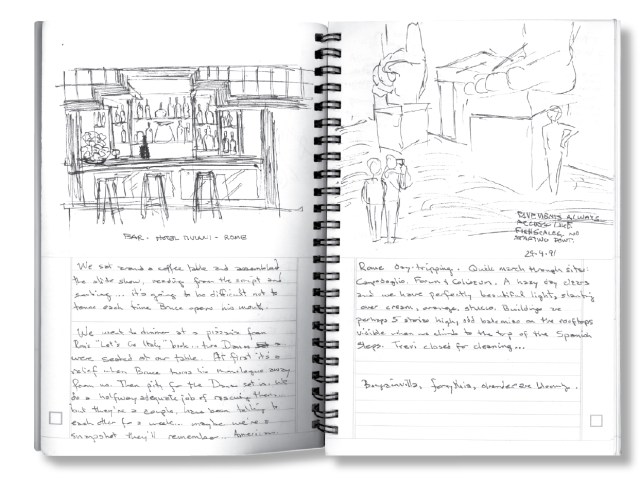 BAR - HOTEL TIVOLI - ROME
We sat around a coffee table and assembled
the slide show, reading from the script and
smoking... it's going to be difficult not to
each time Bruce opens his mouth.
We went to dinner at a pizzeria from
"Let's Go Italy" book... two Danes
were seated at our table. At first it's a
relief when Bruce turns his monologue away
from us. Then pity for the Danes set in. We
do a halfway adequate job of rescuing them...
but they're a couple, have been talking to
each other for a week... maybe we're a
snapshot they'll remember. American
PAVEMENTS ALWAYS
FISHSCALES, NO
STARTING POINT.
29.4.91
Rome Day-tripping. Quick march through sites:
Campidoglio, Forum & Coliseum. A hazy day clears
and we have perfectly beautiful light, slanting
over cream, orange, stucco. Buildings are
perhaps 5 stories high, odd balconies on the rooftops
visible when we climb to the top of the Spanish
Steps. Trevi closed for cleaning...
forsythia, oleander are blooming.